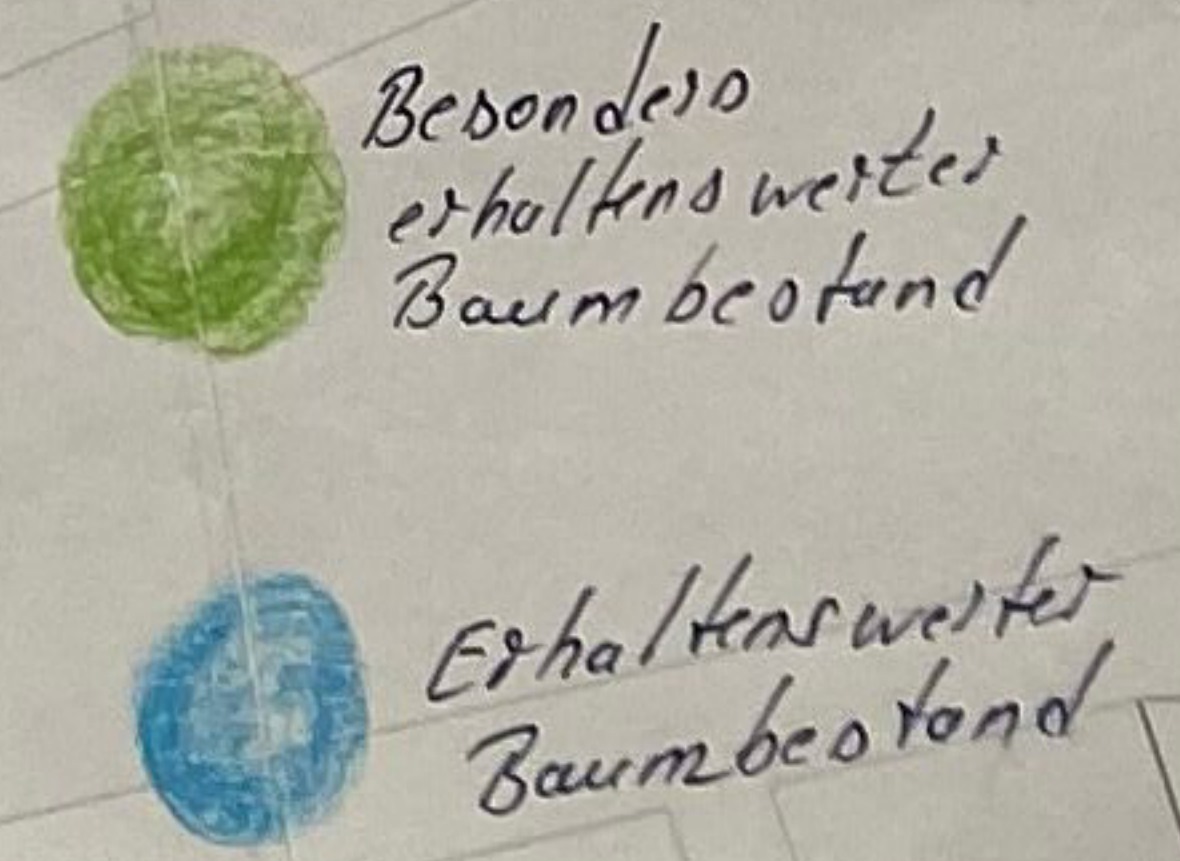 Besonders
erhaltenswerter
Baumbestand
Erhaltenswerter
Baumbestand